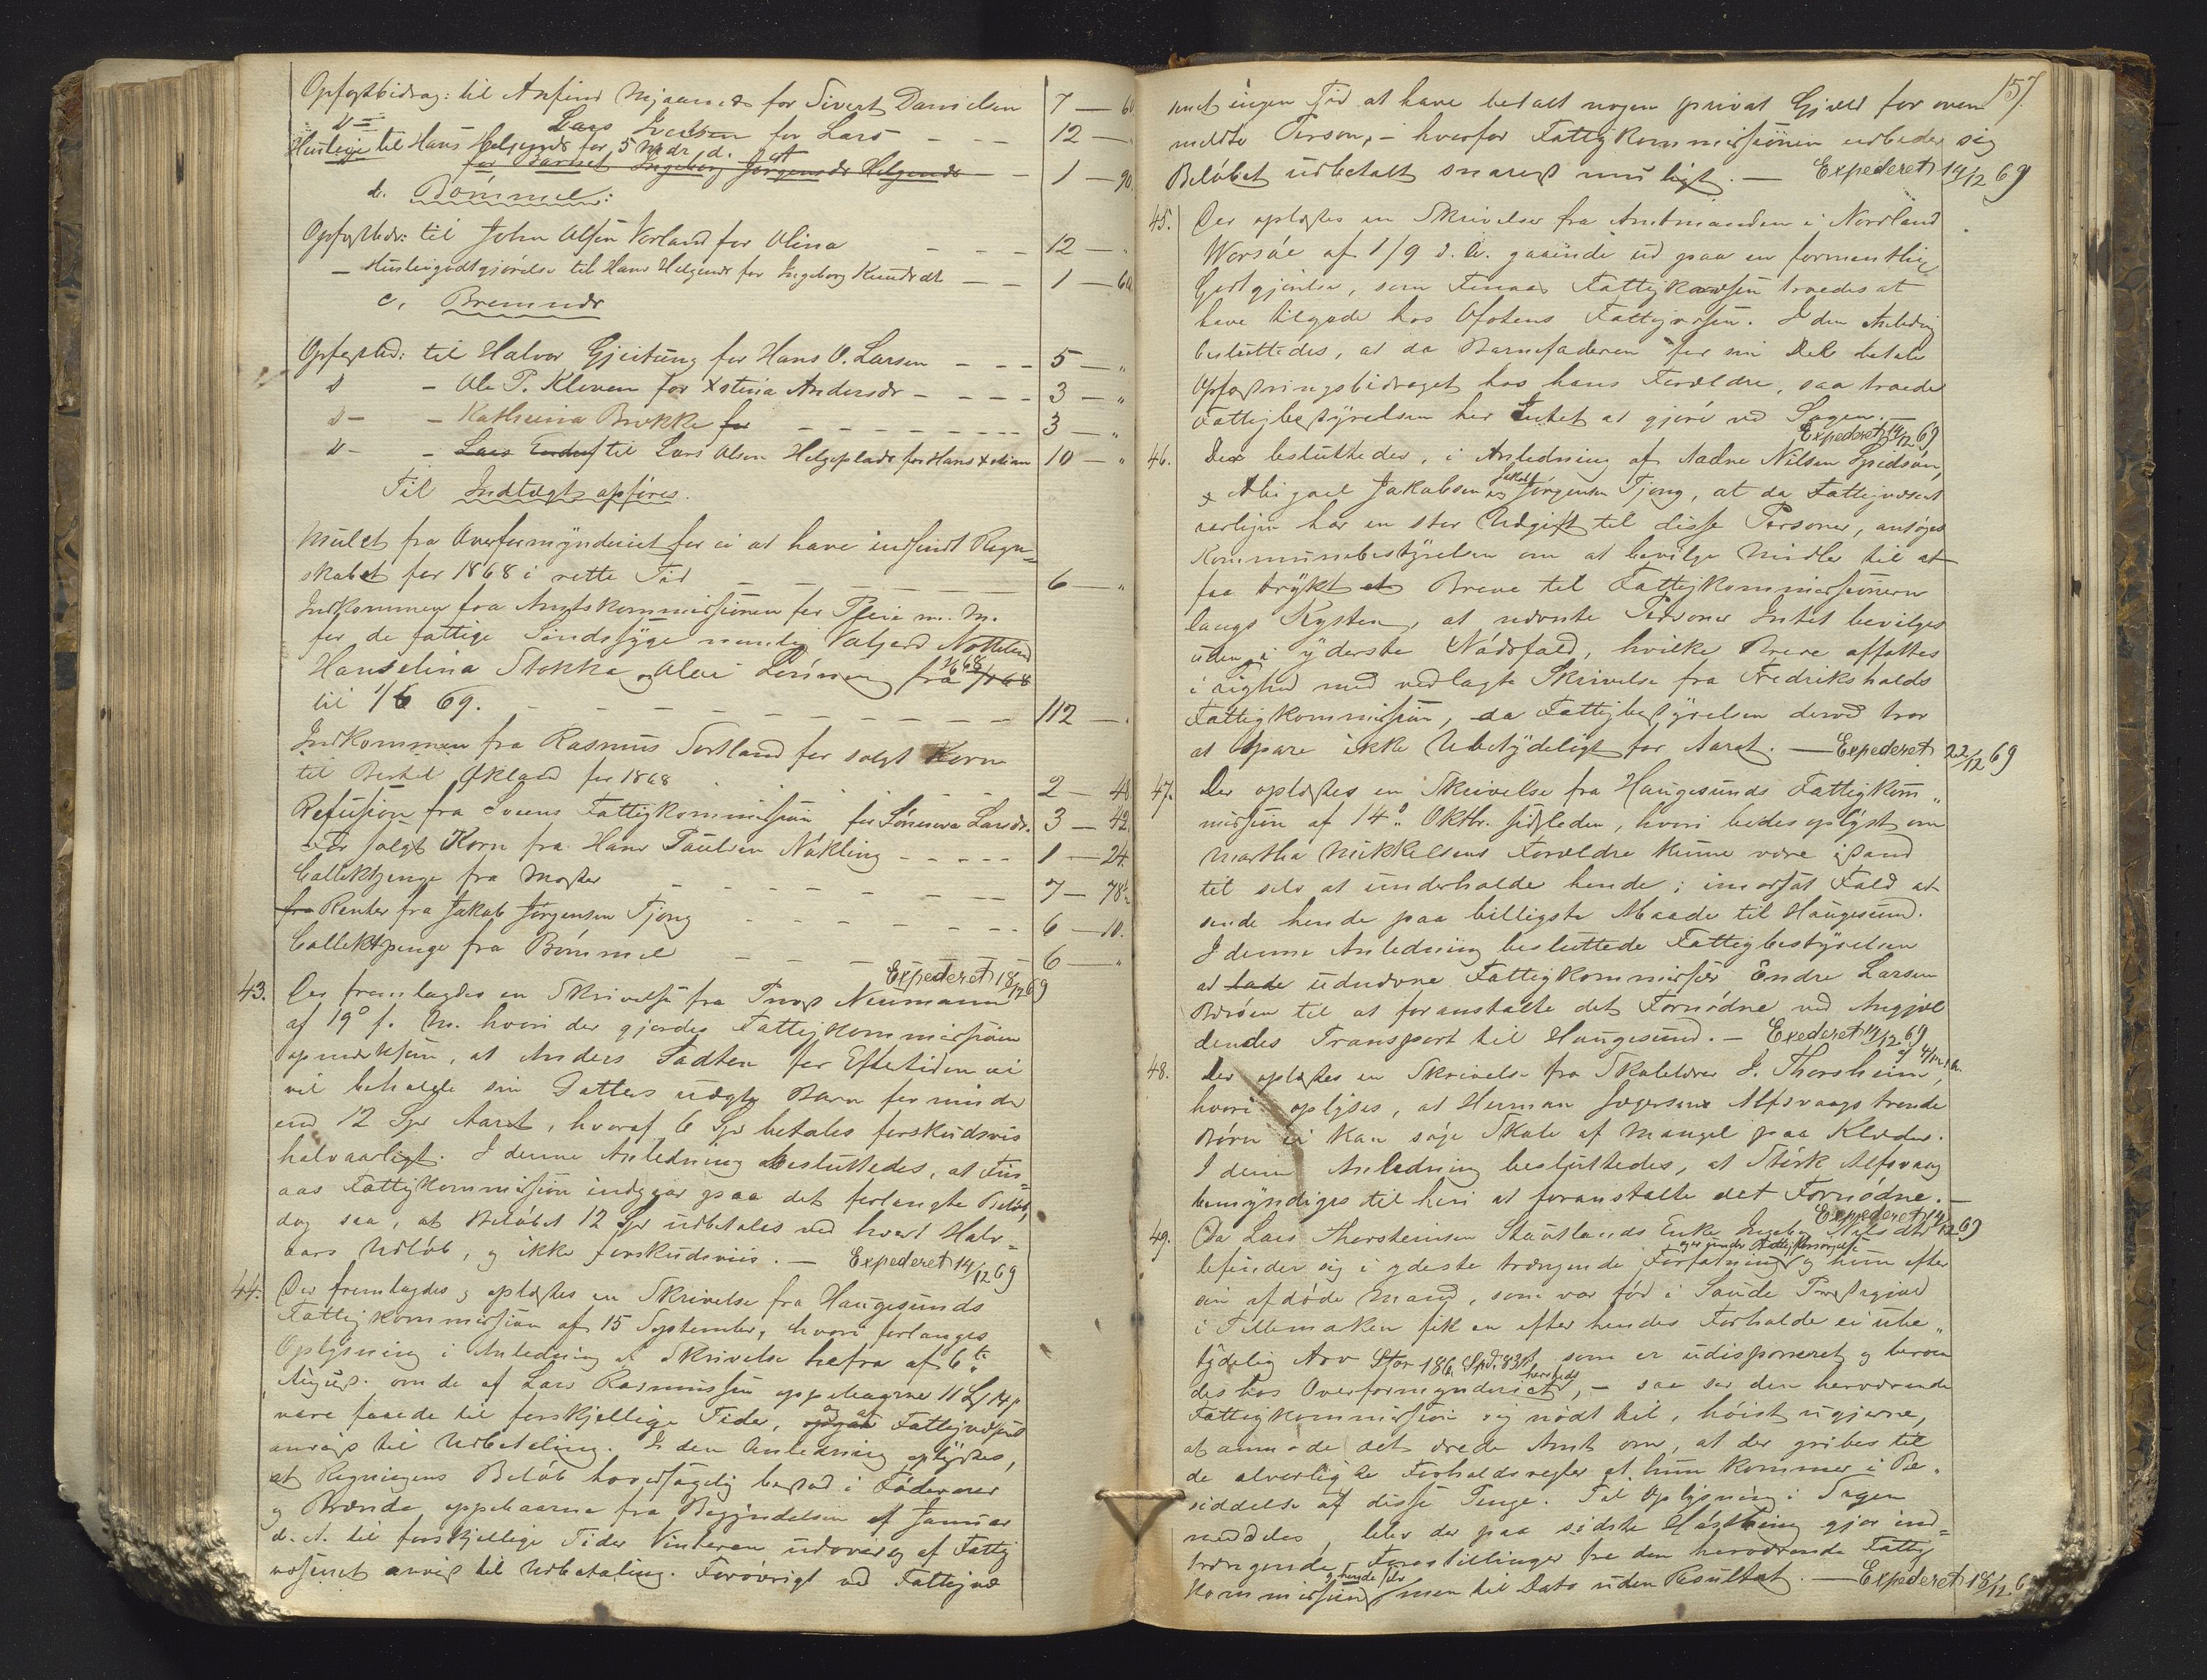 Opfostbidrag: til Anfind Mjaanæs for Sivert Danielsen 7 — 60
D= Lars Iversen for Lars - - - 12 — "
Husleie til Hans Helgenæs for 5 Mdr d. Get
for Barnet Ingeborg Jørgensdr Helgenæs - - 1 — 90.
b. Bømmel:
Opfostbdr: til John Olsen Vorland for Olina - - - 12 — "
— Huslejegodtgjørelse til Hans Helgenæs for Ingeborg Knudsdtr - - 1 — 60
c. Bremnæs
Opfostbd: til Halvor Gjeitung for Hans O. Larsen - - - 5 — "
D - Ole P. Kleven for Xstina Andersdr - - - - 3 — "
D - - Kathrina Brokke for - - - - - - - 3 — "
D - - Lars til Lars Olsen Helgeplads for Hans Xstian 10 — "
Til Indtægt opføres.
Mulct fra Overformynderiet for ei at have indsendt Regn=
skabet for 1868 i rette Tid - - - - - - 6 — "
Indkommen fra Amtskommissionen for Pleie m. M.
for de fattige Sindssyge nemlig Valgerd Notteland
Hanselina Stokka og Alvi Lønning fra 1/6 68
til 1/6 69. - - - - - - - - 112 — .
Indkommen fra Rasmus Sortland for solgt Korn
til Bertel Økland for 1868 - - - - 2 — 48
Refusion fra Sveens Fattigkommission for Sønneva Larsdr. 3 — 42.
For solgt Korn fra Hans Paulsen Nøkling - - - - - 1 — 24.
Collektpenge fra Moster - - - - - - 7 — 78½
fra Renter fra Jakob Jørgensen Tjong - - - - - 6 — 10.
Collektpenge fra Bømmel - - - - - - 6 — "
Expederet 18/12 69
43. Der fremlagdes en Skrivelse fra Provst Neumann
af 19de f. M. hvori der gjordes Fattigkommissionen
opmerksom, at Anders Sadten for Eftertiden ei
vil beholde sin Datters uægte Barn for mindre
end 12 Spd Aaret, hvoraf 6 Spd betales forskudsvis
halvaarligt. I denne Anledning besluttedes, at Fin=
aas Fattigkommission indgaar paa det forlangte Beløb,
dog saa, at Beløbet 12 Spd udbetales ved hvert Halv=
aars Udløb, og ikke forskudsviis. — Expederet 14/12 69
44. Der fremlagdes og oplæstes en Skrivelse fra Haugesunds
Fattigkommission af 15 September, hvori forlanges
Oplysning i Anledning af Skrivelse herfra af 6te
August. om de af Lars Rasmussen oppebaarne 11 Spd 14 s
vare faaede til forskjellige Tider, og af Fattigvæsenet
anvist til Udbetaling. I den Anledning oplystes,
at Regningens Beløb hovedsagelig bestod i Fødevarer
og Brænde oppebaarne fra Begyndelsen af Januar
d. A. til forskjellige Tider Vinteren udover og af Fattig
væsenet anvist til Udbetaling. Forøvrigt ved Fattigvæ
157.
senet ingen Tid at have betalt nogen privat Gjæld for oven
meldte Person, — hvorfor Fattigkommissionen udbeder sig
Beløbet udbetalt snarest muligt. — Expederet 14/12 69
45. Der oplæstes en Skrivelse fra Amtmanden i Nordland
Worsøe af 1/9 d. A. gaaende ud paa en formentlig
Godtgjørelse, som Finaas Fattigvæsen troedes at
have tilgode hos Ofotens Fattigvæsen. I den Anledning
besluttedes, at da Barnefaderen for sin Del betaler
Opfostringsbidraget hos hans Forældre, saa troede
Fattigbestyrelsen her Intet at gjøre ved Sagen. —
Expederet 14/12 69
46. Der besluttedes, i Anledning af Aadne Nilsen Spidsøen,
& Abigael Jakobsen og Jakob Jørgensen Tjong, at da Fattigvæsenet
aarligen har en stor Udgift til disse Personer, ansøges
Kommunebestyrelsen om at bevilge Midler til at
faa trykt et Breve til Fattigkommissionerne
langs Kysten, at nævnte Personer Intet bevilges
uden i yderste Nødsfald, hvilke Breve affattes
i Lighed med vedlagte Skrivelse fra Fredrikshalds
Fattigkommission, da Fattigbestyrelsen derved tror
at spare ikke Ubetydeligt for Aaret. — Expederet 22/12 69
47. Der oplæstes en Skrivelse fra Haugesunds Fattigkom"
mission af 14de Oktbr. sidstleden, hvori bedes oplyst om
Martha Mikkelsens Forældre kunne være istand
til selv at underholde hende; i modsat Fald at
sende hende paa billigste Maade til Haugesund.
I denne Anledning besluttede Fattigbestyrelsen
at lade udnævne Fattigkommissær Endre Larsen
Børøen til at foranstalte det Fornødne ved Angjæl
dendes Transport til Haugesund. — Exederet 14/12 69
48. Der oplæstes en Skrivelse fra Skolelærer J. Thorsheim, af 4/11 d. A.
hvori oplyses, at Herman Aagersens Alfsvaags trende
Børn ei kan søge Skole af Mangel paa Klæder.
I denne Anledning besluttedes, at Størk Alfsvaag
bemyndiges til heri at foranstalte det Fornødne. —
Expederet 14/12 69
49. Da Lars Thorsteinsen Stautlands Enke Ingebor Nilsdtr
befinder sig i yderste trængende Forfatning og er under Fattigforsørgelse og hun efter
sin afdøde Mand, som var fød i Saude Præstegjeld
i Tellemarken fik en efter hendes Forholde ei ube"
tydelig Arv stor 186 Spd. 83 s, som er udisponeret og beroen
des hos Overformynderiet hersteds, — saa ser den herværende
Fattigkommission sig nødt til, høist ugjerne,
at anmode det ærede Amt om, at der gribes til
de alvorligste Forholdsregler at hun kommer i Be"
siddelse af disse Penge. Til Oplysning i Sagen
meddeles, blev der paa sidste Høstthing gjor ind=
trængende Forestillinger fra den herværende Fattig
kommission og hende selv men til Dato uden Resultat. — Expederet 18/12 6